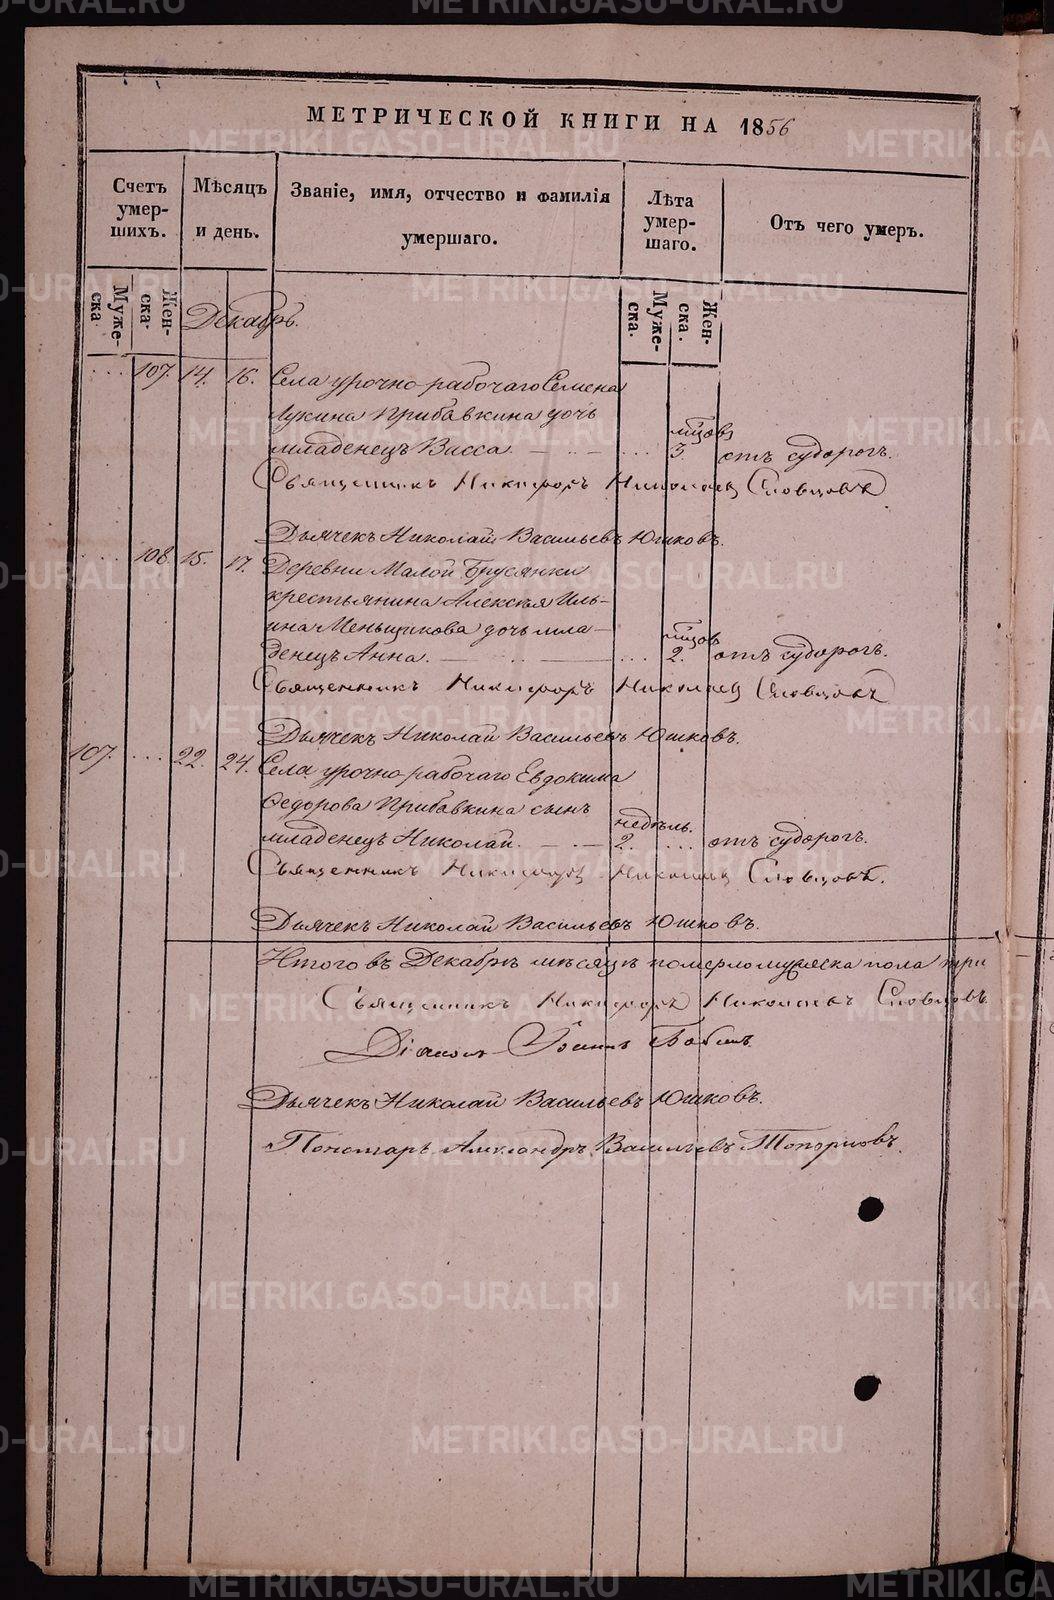 МЕТРИЧЕСКОЙ КНИГИ НА 1856
Счетъ умер-шихъ.
Мѣсяцъ и день.
Званіе, имя, отчество и фамилія умершаго.
Лѣта умер-шаго.
Отъ чего умеръ.
Муже-ска.
Жен-ска.
Декабрь.
Муже-ска.
Жен-ска.
107. 14. 16. Села урочно-рабочаго Семена
Лукина Прибавкина дочь
мѣцов
младенецъ Васса. 3. отъ судорогъ.
Священникъ Никифоръ Николаевъ Словцовъ
Дьячекъ Николай Васильевъ Юшковъ.
108. 15. 17. Деревни Малой Брусянки
крестьянина Алексѣя Иль-
ина Меньщикова дочь мла-
мѣцов
денецъ Анна. 2. отъ судорогъ.
Священникъ Никифоръ Николаевъ Словцовъ
Дьячекъ Николай Васильевъ Юшковъ.
107. 22. 24. Села урочно-рабочаго Евдокима
Ѳедорова Прибавкина сынъ
недѣль.
младенецъ Николай. 2. отъ судорогъ.
Священникъ Никифоръ Николаевъ Словцовъ.
Дьячекъ Николай Васильевъ Юшковъ.
Итого въ Декабрѣ мѣсяцѣ померло мужеска пола три
Священникъ Никифоръ Николаевъ Словцовъ.
Діаконъ Іоаннъ
Дьячекъ Николай Васильевъ Юшковъ.
Пономарь Александръ Васильевъ Топорковъ.
METRIKI.GASO-URAL.RU